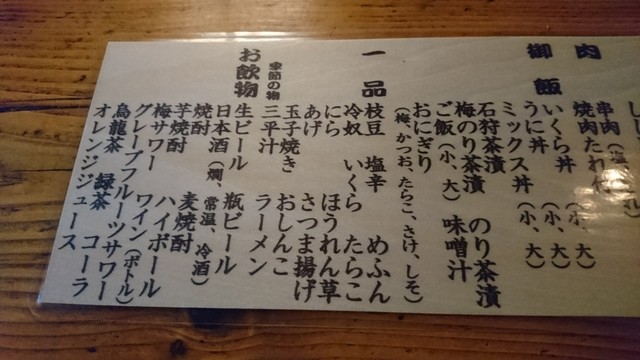 肉
串肉
焼肉たれ付
御飯
いくら丼（小、大）
うに丼（小、大）
ミックス丼（小、大）
石狩茶漬 のり茶漬
梅のり茶漬
ご飯（小、大） 味噌汁
おにぎり
（梅、かつお、たらこ、さけ、しそ）
一品
枝豆 塩辛 めふん
冷奴 いくら たらこ
にら ほうれん草
あげ さつま揚げ
玉子焼き おしんこ
季節の物
三平汁 ラーメン
お飲物
生ビール 瓶ビール
日本酒（燗、常温、冷酒）
焼酎 麦焼酎
芋焼酎
梅サワー ハイボール
グレープフルーツサワー ワイン（ボトル）
烏龍茶 緑茶 コーラ
オレンジジュース